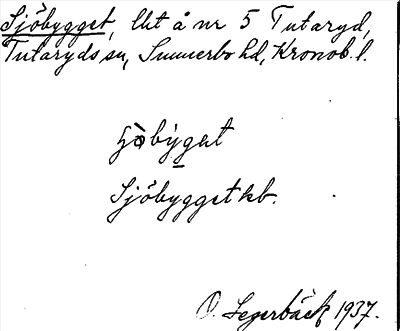 Sjöbygget, lht å nr 5 Tutaryd,
Tutaryds sn, Sunnerbo hd, Kronob. l.
Sjöbygget kb.
O. Segerbäck 1937.